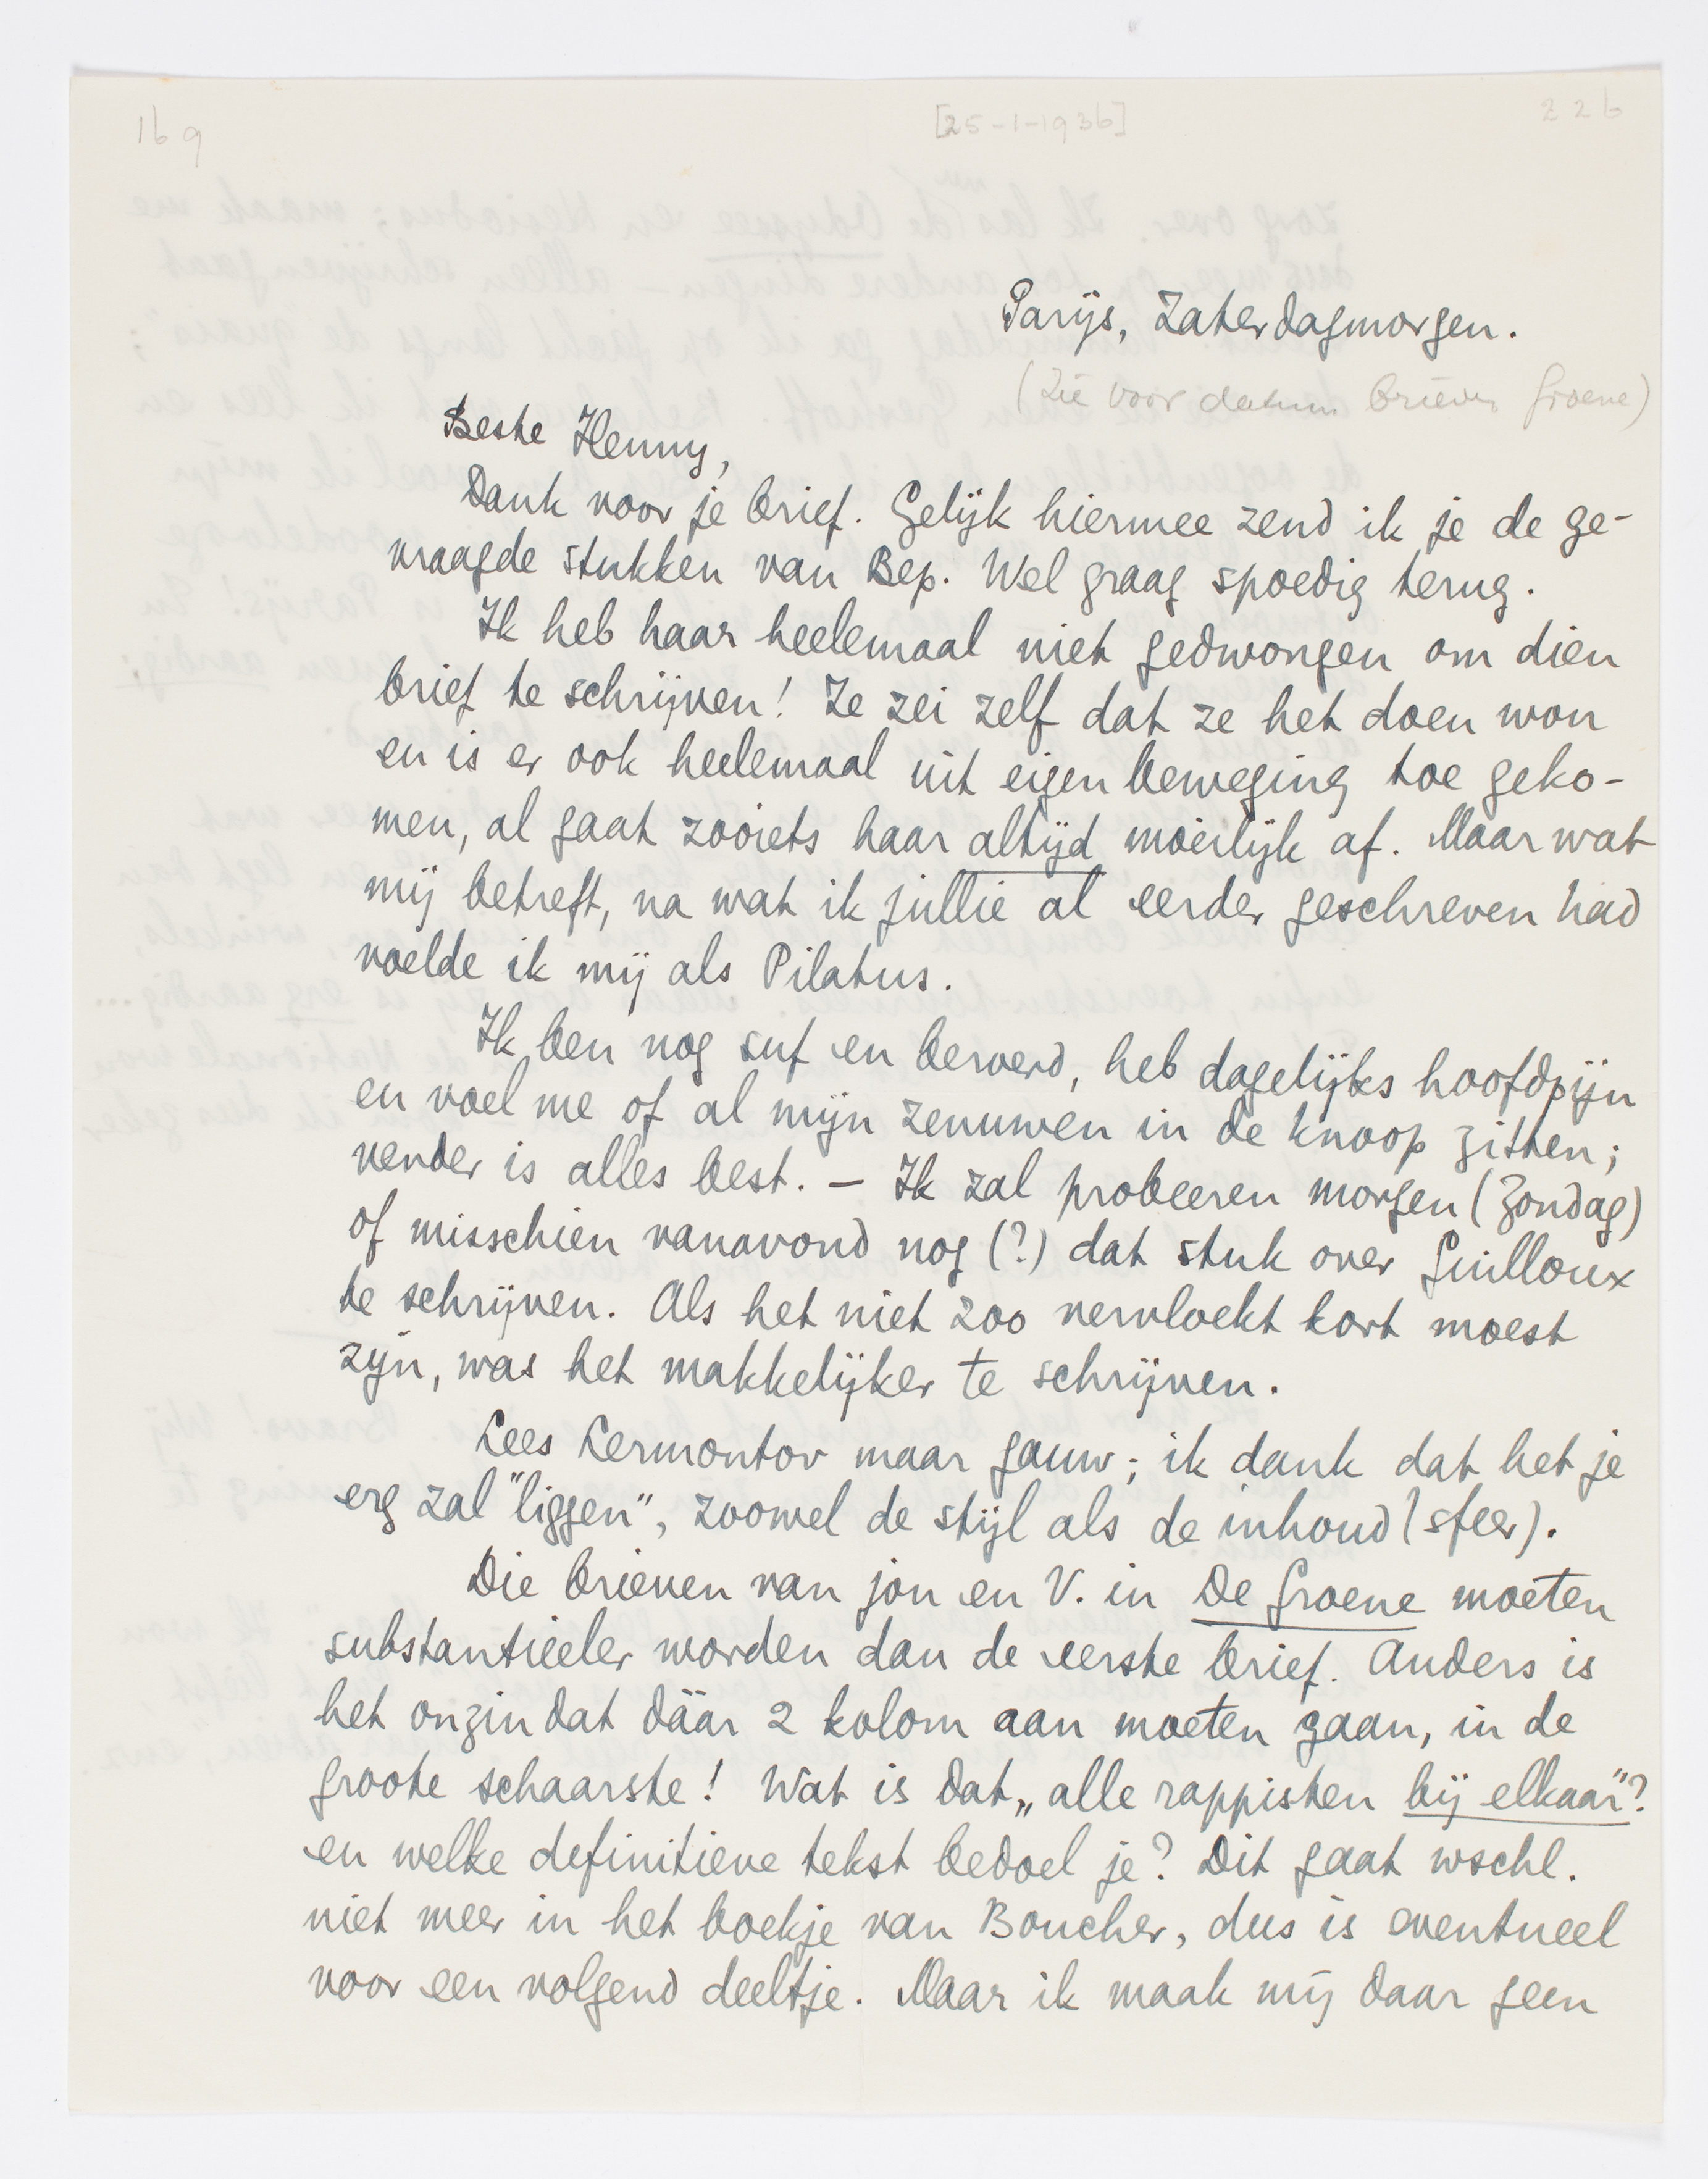 169
[25-1-1936]
226
Parijs, Zaterdagmorgen.
(Zie voor datum brieven Groene)
Beste Henny,
Dank voor je brief. Gelijk hiermee zend ik je de ge-
vraagde stukken van Bep. Wel graag spoedig terug.
Ik heb haar heelemaal niet gedwongen om dien
brief te schrijven! Ze zei zelf dat ze het doen wou
en is er ook heelemaal uit eigen beweging toe geko-
men, al gaat zooiets haar altijd moeilijk af. Maar wat
mij betreft, na wat ik jullie al eerder geschreven had
voelde ik mij als Pilatus.
Ik ben nog suf en beroerd, heb dagelijks hoofdpijn
en voel me of al mijn zenuwen in de knoop zitten;
verder is alles best. – Ik zal probeeren morgen (Zondag)
of misschien vanavond nog (?) dat stuk over Guilloux
te schrijven. Als het niet zoo vervloekt kort moest
zijn, was het makkelijker te schrijven.
Lees Lermontov maar gauw; ik dank dat het je
erg zal "liggen", zoowel de stijl als de inhoud (sfeer).
Die brieven van jou en V. in De Groene moeten
substantieeler worden dan de eerste brief. Anders is
het onzin dat dáár 2 kolom aan moeten gaan, in de
groote schaarste! Wat is dat „alle rappisten bij elkaar"?
en welke definitieve tekst bedoel je? Dit gaat wschl.
niet meer in het boekje van Boucher, dus is eventueel
voor een volgend deeltje. Maar ik maak mij daar geen